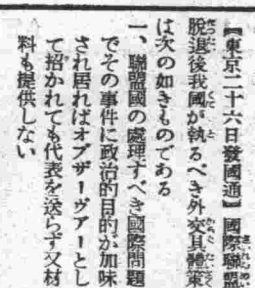 【東京二十六日發國通】國際聯盟
脫退後我國が執るべき外交具體策
は次の如きものである
一、聯盟國の處理すべき國際問題
でその事件に政治的目的が加味
され居ればオブザーヴアーとし
て招かれても代表を送らず又材
料も提供しない